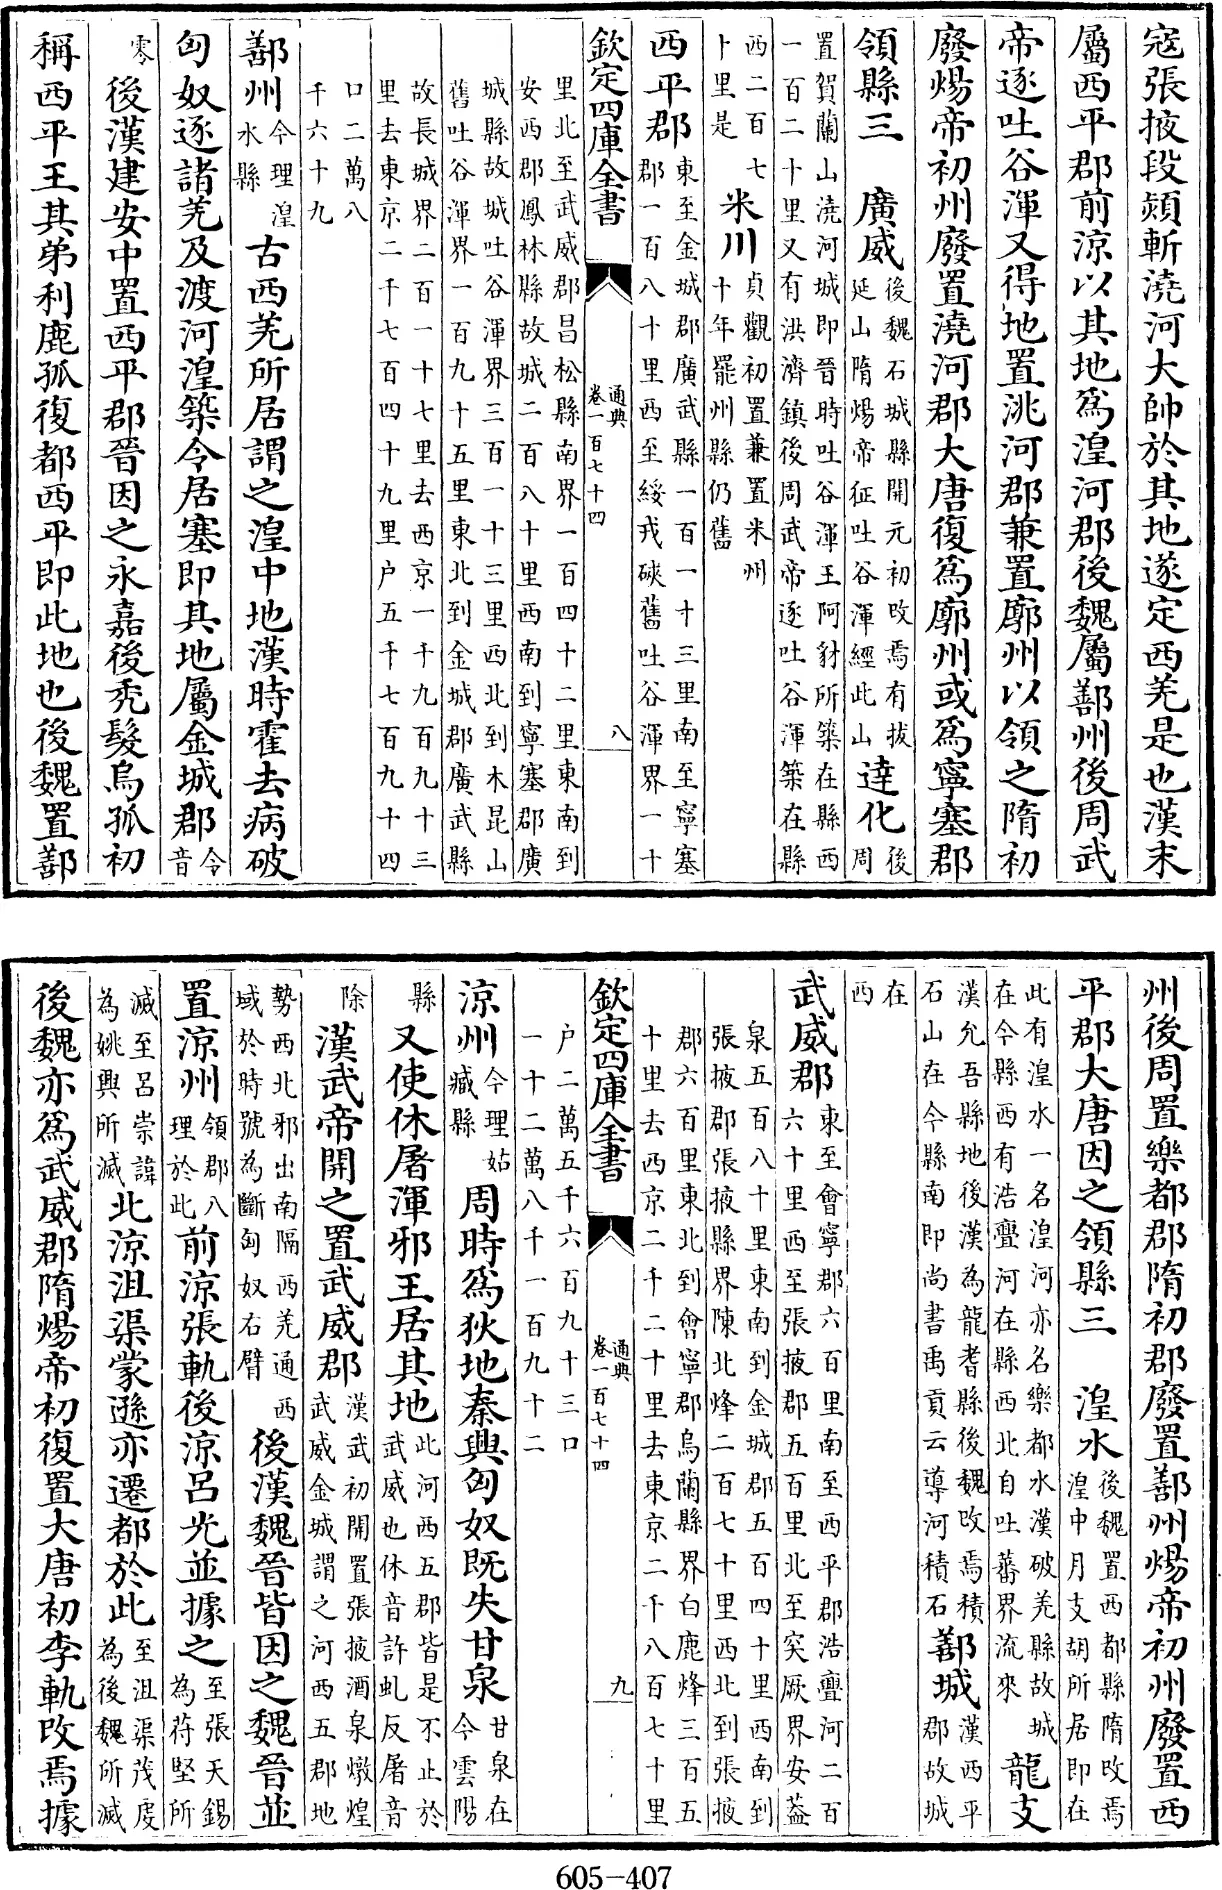 宼張掖段熲斬澆河大帥於其地遂定西羌是也漢末
屬西平郡前涼以其地爲湟河郡後魏屬鄯州後周武
帝逐吐谷渾又得地置洮河郡兼置廓州以領之隋初
廢煬帝初州廢置澆河郡大唐復爲廓州或爲寧塞郡
領縣三 廣威後魏石城縣開元初改焉有拔延山隋煬帝征吐谷渾經此山 逹化後周
置賀蘭山澆河城即晉時吐谷渾王阿豺所築在縣西一百二十里又有洪濟鎮後周武帝逐吐谷渾築在縣
西二百七十里是 米川貞觀初置兼置米州十年罷州縣仍舊
西平郡東至金城郡廣武縣一百一十三里南至寧塞郡一百八十里西至綏戎硤舊吐谷渾界一十
欽定四庫全書 通典卷一百七十四 八
里北至武威郡昌松縣南界一百四十二里東南到安西郡鳳林縣故城二百八十里西南到寧塞郡廣
城縣故城吐谷渾界三百一十三里西北到木昆山舊吐谷渾界一百九十五里東北到金城郡廣武縣
故長城界二百一十七里去西京一千九百九十三里去東京二千七百四十九里户五千七百九十四
口二萬八千六十九
鄯州今理湟水縣 古西羌所居謂之湟中地漢時霍去病破
匈奴逐諸羌及渡河湟築令居塞即其地屬金城郡令音
零 後漢建安中置西平郡晉因之永嘉後秃髮烏孤初
稱西平王其弟利鹿孤復都西平即此地也後魏置鄯
州後周置樂都郡隋初郡廢置鄯州煬帝初州廢置西
平郡大唐因之領縣三 湟水後魏置西都縣隋改焉湟中月支胡所居即在
此有湟水一名湟河亦名樂都水漢破羌縣故城在今縣西有浩亹河在縣西北自吐蕃界流來 龍支
漢允吾縣地後漢為龍耆縣後魏改焉積石山在今縣南即尚書禹貢云導河積石 鄯城漢西平郡故城
在西
武威郡東至會寧郡六百里南至西平郡浩亹河二百六十里西至張掖郡五百里北至突厥界安葢
泉五百八十里東南到金城郡五百四十里西南到張掖郡張掖縣界陳北烽二百七十里西北到張掖
郡六百里東北到會寧郡烏蘭縣界白鹿烽三百五十里去西京二千二十里去東京二千八百七十里
户二萬五千六百九十三口一十二萬八千一百九十二
欽定四庫全書 通典卷一百七十四 九
涼州今理姑臧縣 周時爲狄地秦興匈奴既失甘泉甘泉在今雲陽
縣 又使休屠渾邪王居其地此河西五郡皆是不止於武威也休音許虬反屠音
除 漢武帝開之置武威郡漢武初開置張掖酒泉燉煌武威金城謂之河西五郡地
勢西北邪出南隔西羌通西域於時號為斷匈奴右臂 後漢魏晉皆因之魏晉並
置涼州領郡八理於此 前涼張軌後涼呂光並據之至張天錫為苻堅所
滅至呂崇諱為姚興所滅 北涼沮渠蒙遜亦遷都於此至沮渠茂虔為後魏所滅
後魏亦爲武威郡隋煬帝初復置大唐初李軌改焉據
605-407